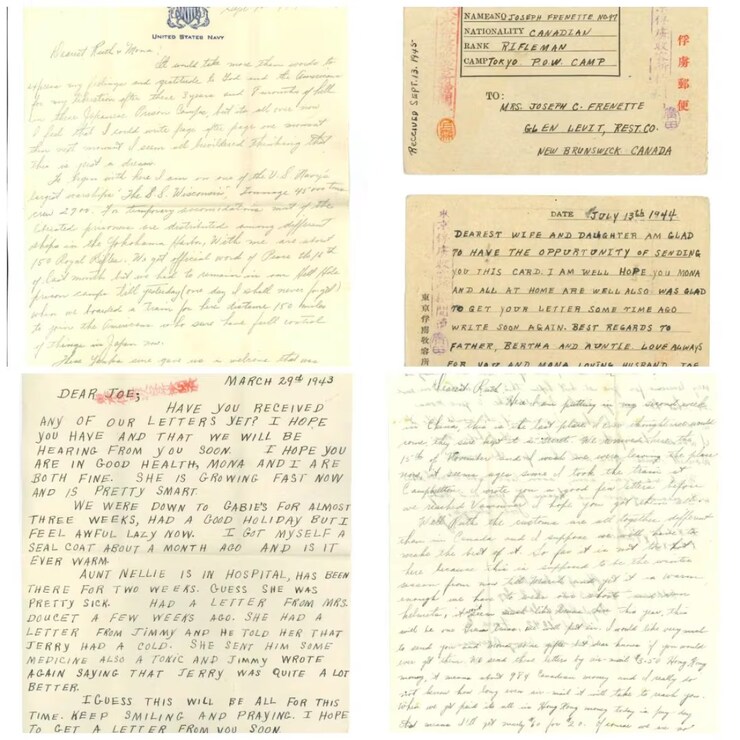 UNITED STATES NAVY
Dearest Ruth & Mona;
It would take more than words to
express my feelings and gratitude to God and the Americans
for my liberation after three years and 8 months of hell
in these Japanese Prison Camps, but its all over now
I feel that I could write page after page one moment
then next moment I seem so bewildered thinking that
this is just a dream.
To begin with here I am on one of the U.S. Navy's
largest warships "The S.S. Wisconsin", Tonnage 45000 tons
crew 2700. For temporary accomodations most of the
liberated prisoners are distributed among different
ships in the Yokohama Harbor, With me are about
150 Royal Rifles. We got official word of Peace the 16th
of last month but we had to remain in our Hell Hole
prison camps till yesterday (one day I shall never forget)
when we boarded a train for here distance 150 miles
to join the Americans who sure have full control
of things in Japan now.
These Yanks sure gave us a welcome that was
NAME & NO JOSEPH FRENETTE NO. 97
NATIONALITY CANADIAN
RANK RIFLEMAN
CAMP TOKYO P.O.W. CAMP
俘虜郵便
RECEIVED SEPT. 13. 1945
TO:
MRS. JOSEPH C. FRENETTE
GLEN LEVIT, REST. CO.
NEW BRUNSWICK CANADA
DATE JULY 13th 1944
DEAREST WIFE AND DAUGHTER AM GLAD
TO HAVE THE OPPURTUNITY OF SENDING
YOU THIS CARD. I AM WELL HOPE YOU MONA
AND ALL AT HOME ARE WELL ALSO WAS GLAD
TO GET YOUR LETTER SOME TIME AGO
WRITE SOON AGAIN. BEST REGARDS TO
FATHER, BERTHA AND AUNTIE. LOVE ALWAYS
FOR YOU AND MONA LOVING HUSBAND JOE
東京俘虜收容所
MARCH 29th 1943
DEAR JOE;
HAVE YOU RECEIVED
ANY OF OUR LETTERS YET? I HOPE
YOU HAVE AND THAT WE WILL BE
HEARING FROM YOU SOON. I HOPE YOU
ARE IN GOOD HEALTH, MONA AND I ARE
BOTH FINE. SHE IS GROWING FAST NOW
AND IS PRETTY SMART.
WE WERE DOWN TO GABIE'S FOR ALMOST
THREE WEEKS, HAD A GOOD HOLIDAY BUT I
FEEL AWFUL LAZY NOW. I GOT MYSELF A
SEAL COAT ABOUT A MONTH AGO AND IS IT
EVER WARM.
AUNT NELLIE IS IN HOSPITAL, HAS BEEN
THERE FOR TWO WEEKS. GUESS SHE WAS
PRETTY SICK. HAD A LETTER FROM MRS.
DOUCET A FEW WEEKS AGO. SHE HAD A
LETTER FROM JIMMY AND HE TOLD HER THAT
JERRY HAD A COLD. SHE SENT HIM SOME
MEDICINE ALSO A TONIC AND JIMMY WROTE
AGAIN SAYING THAT JERRY WAS QUITE A LOT
BETTER.
I GUESS THIS WILL BE ALL FOR THIS
TIME. KEEP SMILING AND PRAYING. I HOPE
TO GET A LETTER FROM YOU SOON.
Dearest Ruth
Here I am putting in my second week
in China, this is the last place I ever thought we would
come, they sure kept it a secret. We arrived here the
15th of November and I wish we were leaving the place
now, it seems ages since I took the train at
Campbellton. I wrote you a good few letters before
we reached Vancouver I hope you got them all.
Well Ruth the customs are all together different
than in Canada and I suppose we will have to
make the best of it. So far it is not to hot
here because this is supposed to be the winter
season from now till March and yet it is warm
enough we have to wear our shorts and sun
helmets, it
I would like very much
to send you and Mona some gifts but dear knows if you would
ever get them. We send these letters by air mail $3.50 Hong Kong
money, it means about 98¢ Canadian money and I really do
not know how long even air mail it will take to reach you.
While we get paid its all in Hong Kong money today is pay day
that means I'll get nearly $60 for $20. Of course we are no